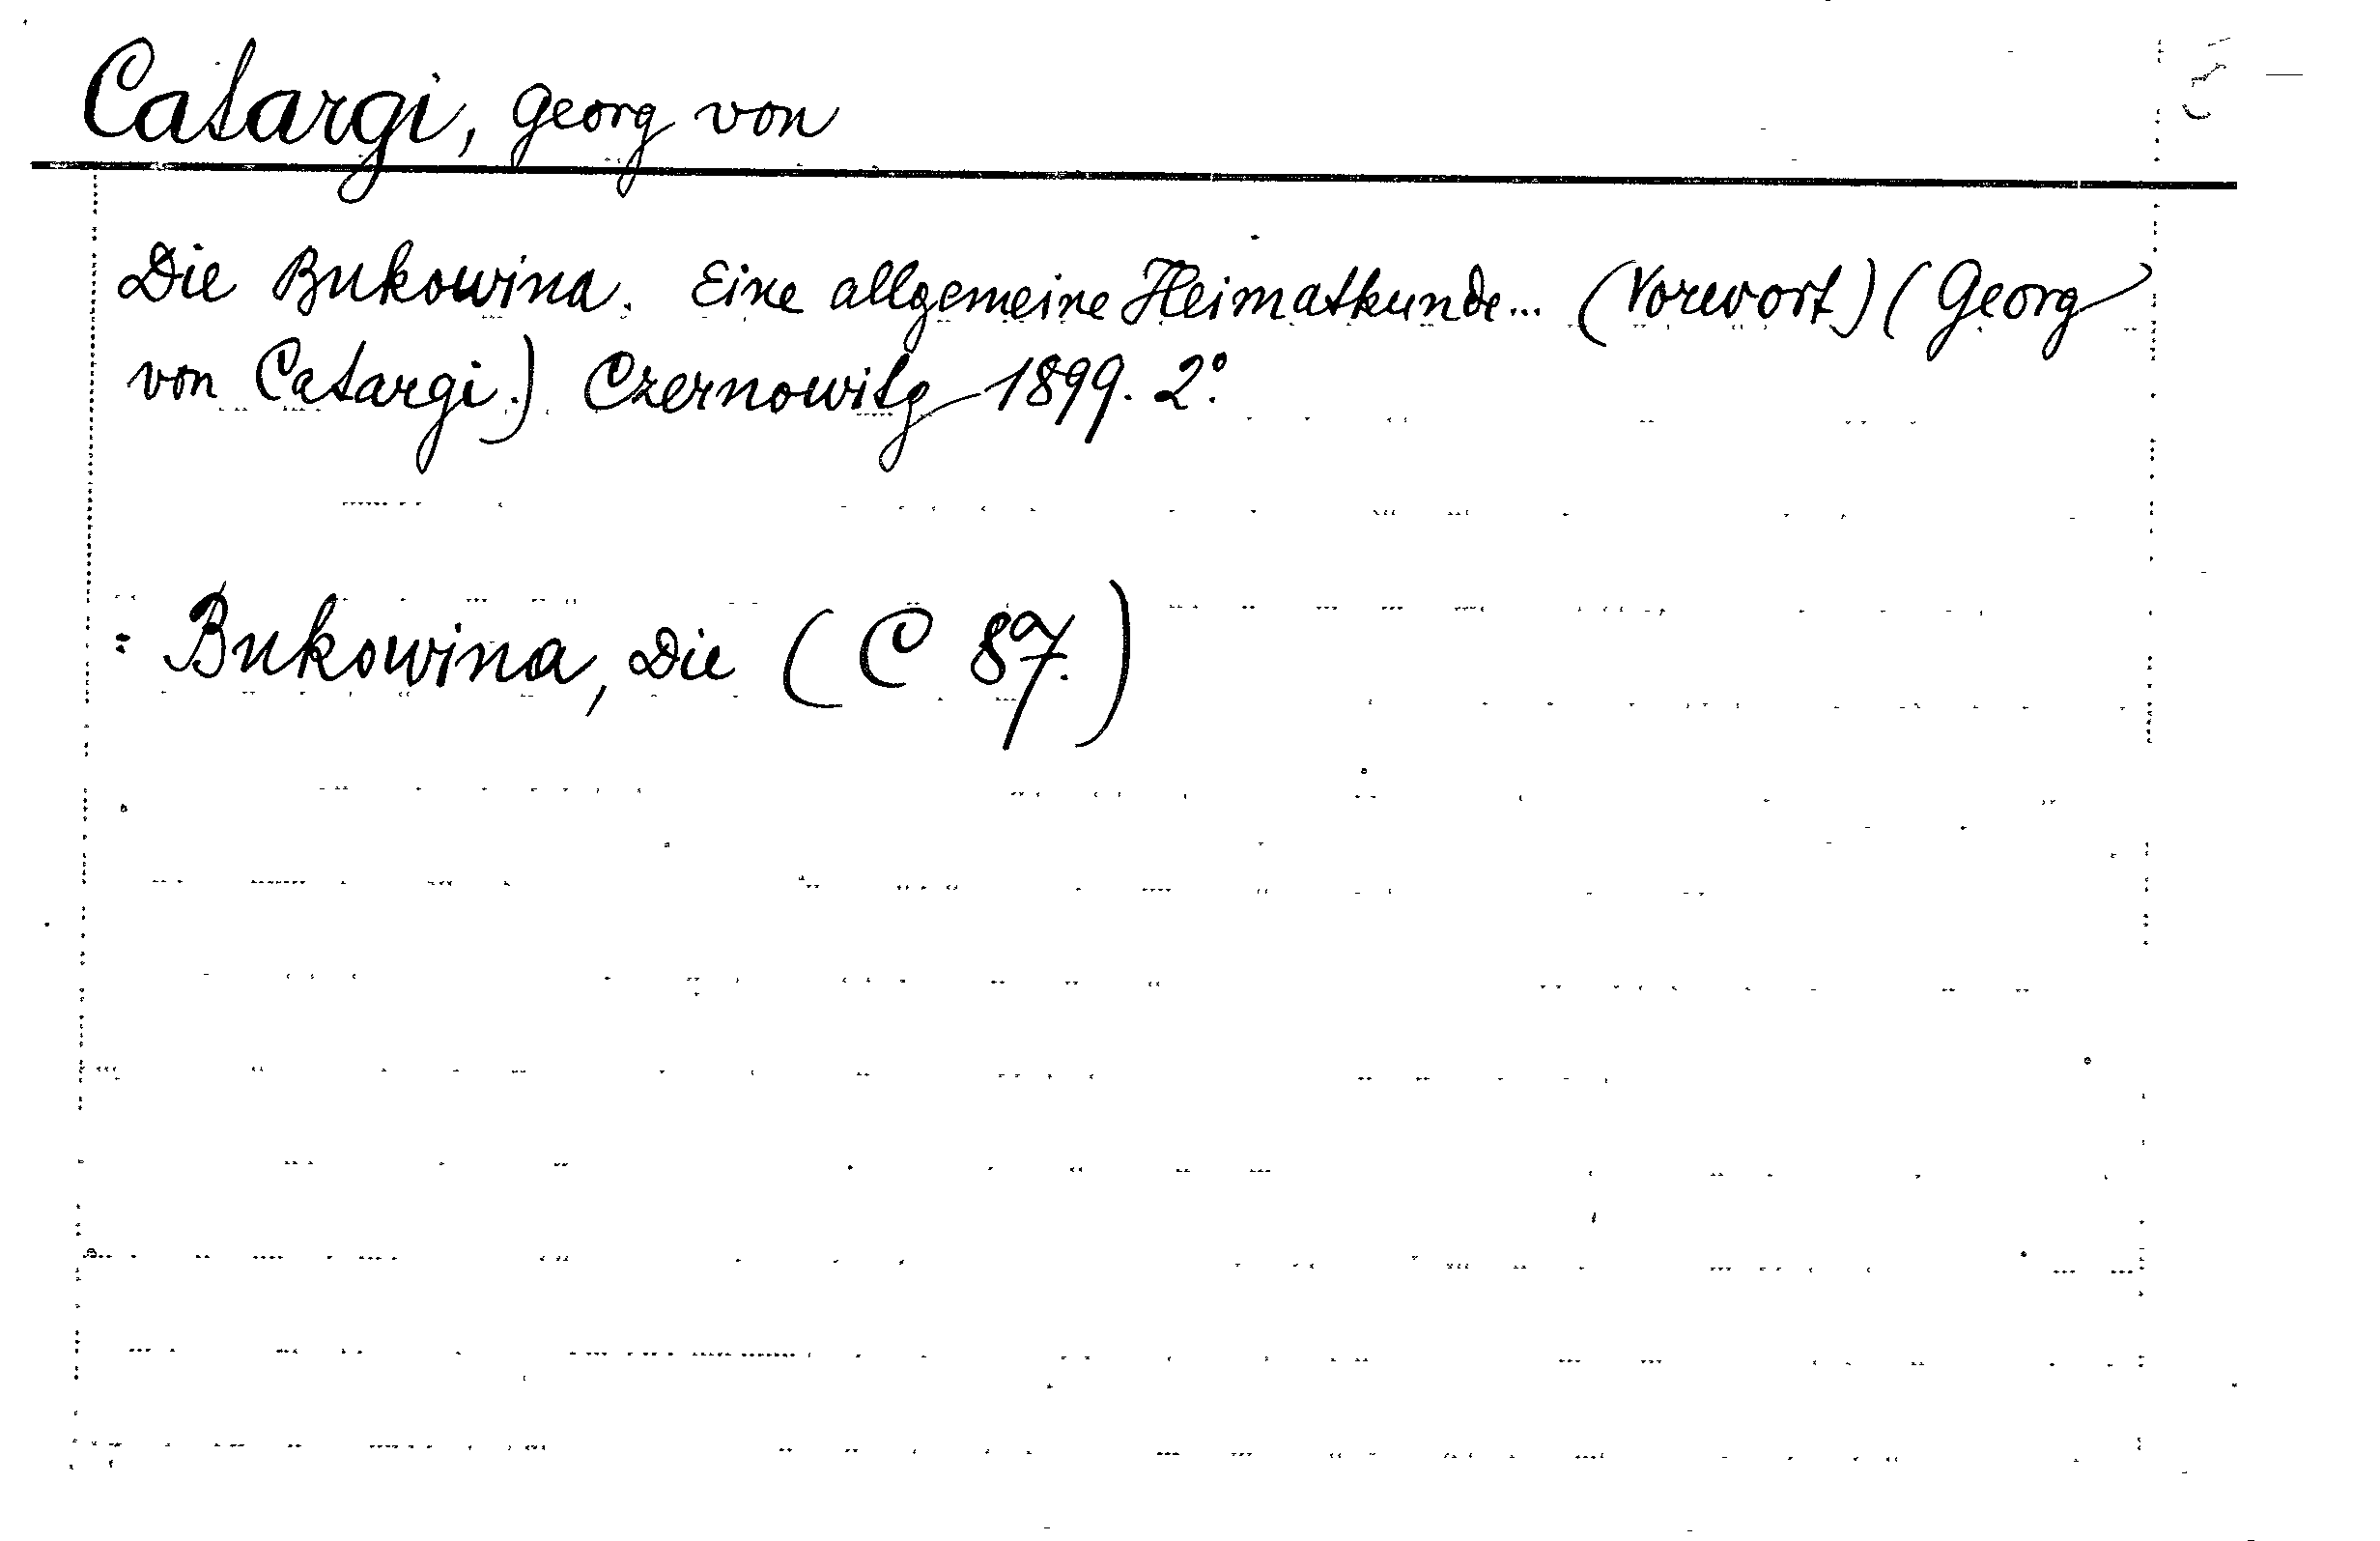 Catargi, Georg von
Die Bukowina. Eine allgemeine Heimatkunde... (Vorwort) (Georg
von Catargi.) Czernowitz 1899. 2°.
= Bukowina, Die (C 87.)